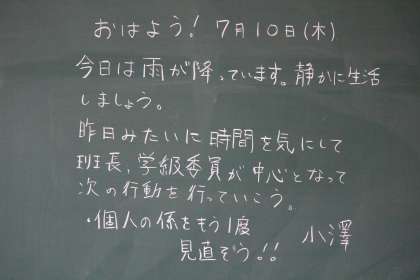 おはよう! 7月10日(木)
今日は雨が降っています。静かに生活
しましょう。
昨日みたいに時間を気にして
班長、学級委員が中心となって
次の行動を行っていこう。
・個人の係をもう1度
見直そう!! 小澤